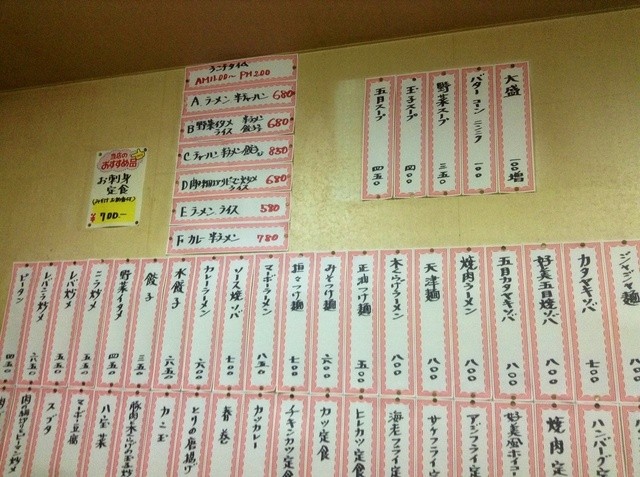 ランチタイム
AM11.00～PM2.00
A ラーメン 半チャーハン 680
B 野菜イタメ ライス 半ラーメン 餃子 680
C チャーハン 半ラーメン 餃子 850
ライス 680
E ラーメン ライス 580
F カレー 半ラーメン 780
当店の
おすすめ品
お刺身
定食
¥ 700.-
大盛 一〇〇増
バター コーン ニンニク 一〇〇
野菜スープ 三五〇
玉子スープ 四〇〇
五目スープ 四五〇
ジャジャ麺
カタヤキソバ 七〇〇
好美五目焼ソバ 八〇〇
五目カタヤキソバ 八〇〇
焼肉ラーメン 八〇〇
天津麺 八〇〇
木くらげラーメン 八〇〇
正油つけ麺 五〇〇
みそつけ麺 六〇〇
担々つけ麺 七〇〇
マーボーラーメン 八五〇
ソース焼ソバ 七〇〇
カレーラーメン 六〇〇
水餃子 六五〇
餃子 三五〇
野菜イタメ 四五〇
ニラ炒メ 五五〇
レバ炒メ 五五〇
レバニラ炒メ 六五〇
ピータン 四五〇
ハンバーグ定
焼肉定
好美風ホイコー
アジフライ定
サケフライ定
海老フライ定
ヒレカツ定食
カツ定食
チキンカツ定食
カツカレー
春巻
とりの唐揚げ
カニ玉
豚肉と木くらげの玉子炒
八宝菜
マーボ豆腐
スブタ
肉細切りピーマン炒メ